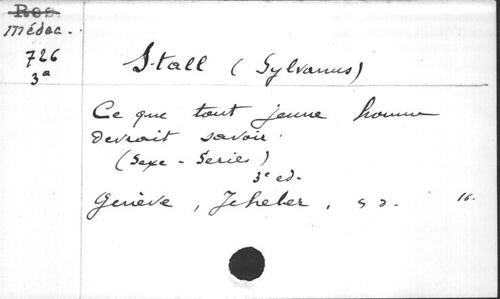 Res
médec.
726
3a
Stall (Sylvanus)
Ce que tout jeune homme
devrait savoir.
(Sexe - Series)
3e ed.
Genève, Jeheber, s d. 16.